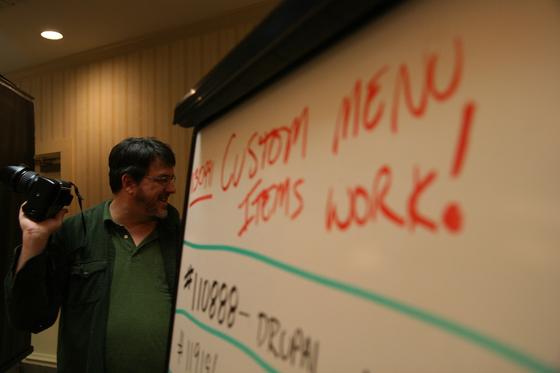 CUSTOM MENU
ITEMS WORK!
#110888- DRUPAL